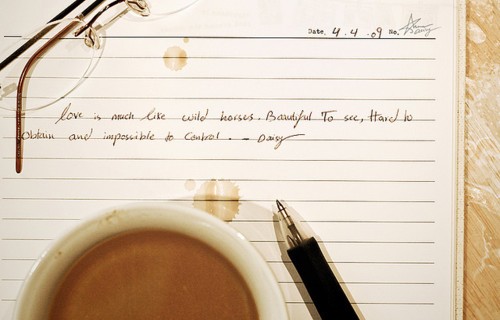 Date. 4.4.09 No.
Daisy
love is much like wild horses. Beautiful To see, Hard to
obtain and impossible to Control. - Daisy